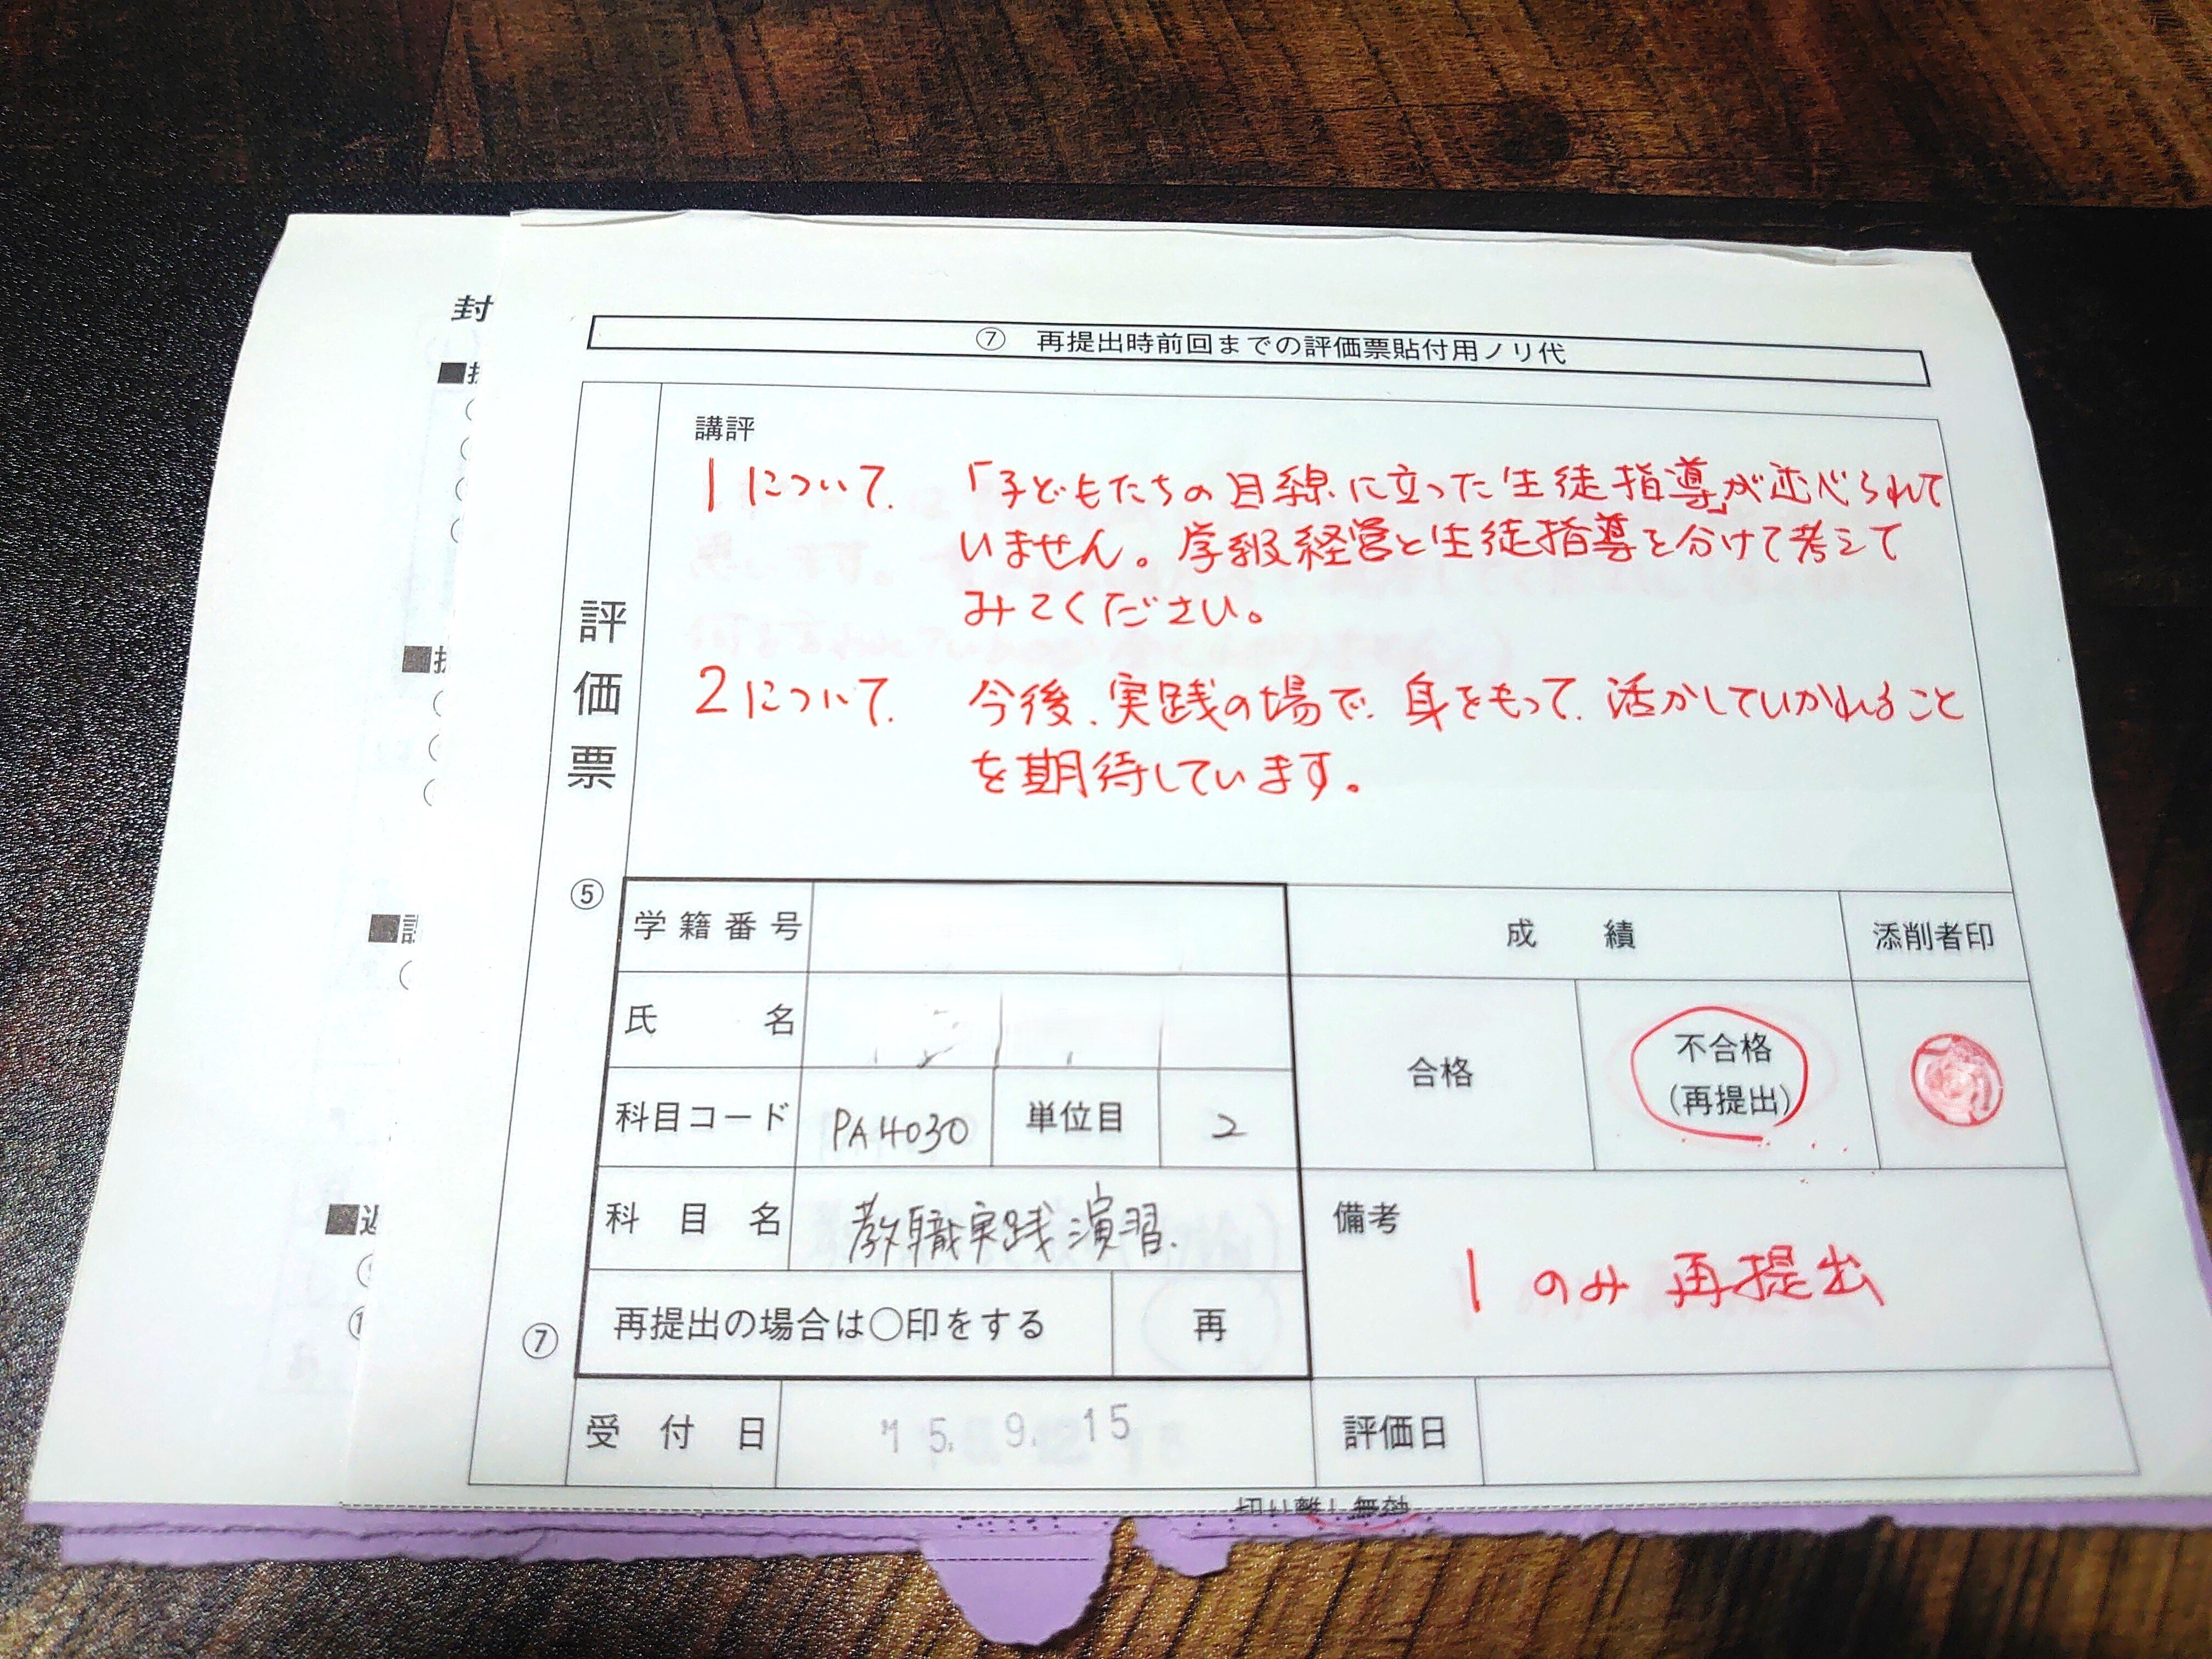 封
⑦ 再提出時前回までの評価票貼付用ノリ代
評価票
講評
1について. 「子どもたちの目線に立った生徒指導」が述べられて
いません。学級経営と生徒指導を分けて考えて
みてください。
2について. 今後、実践の場で、身をもって、活かしていかれること
を期待しています。
⑤
学籍番号
成績
添削者印
氏名
合格
不合格
(再提出)
科目コード PA4030 単位目 2
科目名 教職実践演習.
備考
1のみ再提出
⑦
再提出の場合は○印をする 再
受付日 '15. 9. 15
評価日
切り離し無効